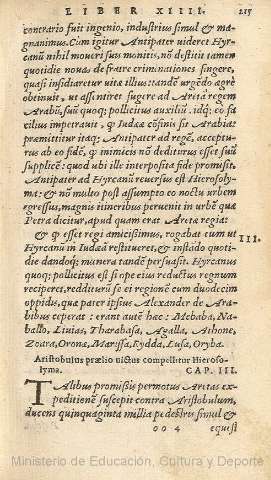 LIBER XIIII. 215
contrario fuit ingenio, industrius simul & ma-
gnanimus. Cum igitur Antipater uideret Hyr-
canū nihil moueri suis monitis, nō destitit tamen
quotidie nouas de fratre criminationes fingere,
quasi insidiaretur uitæ illius: tandē urgēdo ægrè
obtinuit, ut assentiret fugere ad Aretā regem
Arabū, suū quoq; pollicitus auxiliū. idq; eò fa
cilius impetrauit, q̀ Iudæa cōfinis sit Arabiæ:
præmittitur itaq; Antipater ad regē, accepturus
ab eo fidē, q̀ inimicis nō dediturus esset suū
supplicē: quod ubi ille interposita fide promisit,
Antipater ad Hyrcanū reuersus est Hierosoly-
ma: & nō multo pòst assumpto eo noctu urbem
egressus, magnis itineribus peruenit in urbē quæ
Petra dicitur, apud quam erat Aretæ regia:
& q̀ esset regi amicissimus, rogabat eum ut
Hyrcanū in Iudæā restitueret, & instādo quoti-
die dandoq; munera tandē persuasit. Hyrcanus
quoq; pollicitus est si ope eius reductus regnum
reciperet, redditurū se ei regionē cum duodecim
oppidis, quæ pater ipsius Alexander de Ara-
bibus ceperat: erant autē hæc: Medaba, Na-
ballo, Liuias, Tharabasa, Agalla, Athone,
Zoara, Oronæ, Marissa, Rydda, Lusa, Oryba.
III.
Aristobulus prælio uictus compellitur Hieroso-
lyma. CAP. III.
TAlibus promissis permotus Aretas ex-
peditionē suscepit contra Aristobulum,
ducens quinquaginta millia peditum simul &
oo 4 equist
Ministerio de Educación, Cultura y Deporte